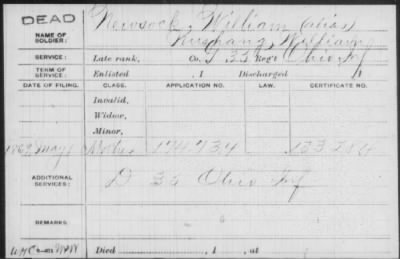 DEAD
NAME OF SOLDIER: Newsock, William (alias)
William
SERVICE: Late rank, Co. 33 Reg't Ohio Inf
TERM OF SERVICE: Enlisted , 1 Discharged , 1
DATE OF FILING. CLASS. APPLICATION NO. LAW. CERTIFICATE NO.
Invalid,
Widow,
Minor,
May Mother 174 734 133
ADDITIONAL SERVICES: D 33 Ohio Inf
REMARKS:
Died , 1 , at